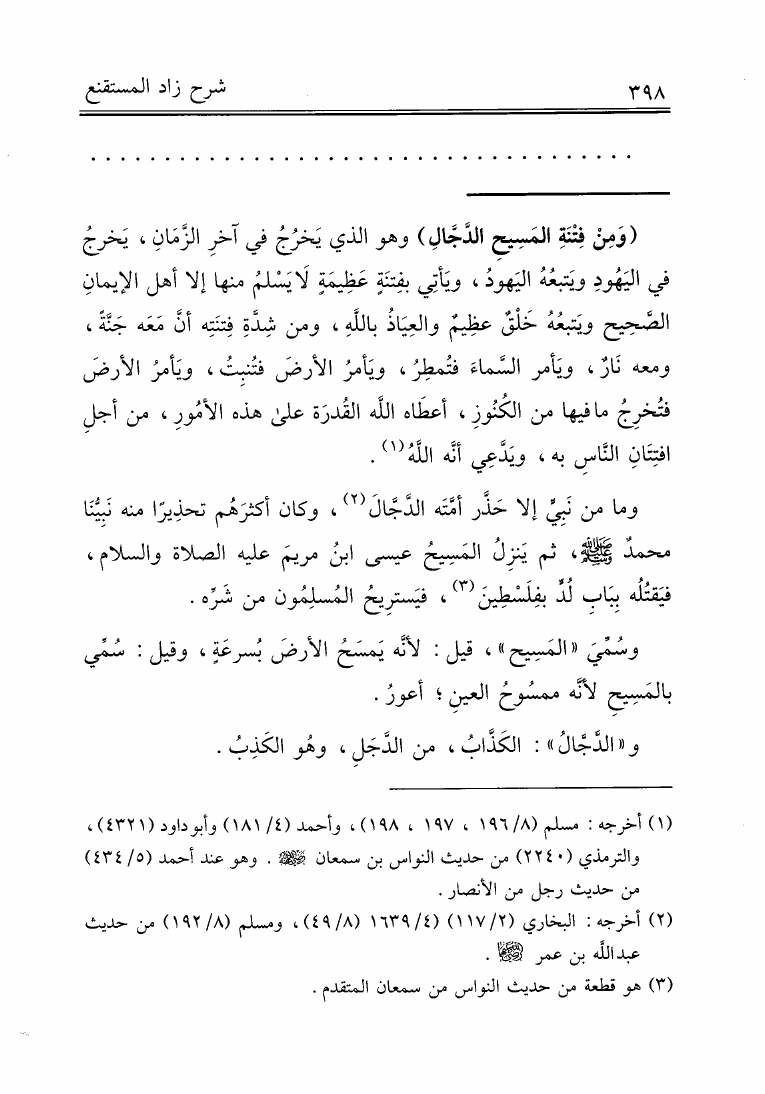 ٣٩٨ شرح زاد المستقنع
. . . . . . . . . . . . . . . . . . . . . . . . . . . . . . . . . . . . . .
(وَمِنْ فِتْنَةِ المَسِيحِ الدَّجَّالِ) وهو الذي يَخرُجُ في آخرِ الزَّمَانِ ، يَخرجُ
في اليَهُودِ ويَتبعُهُ اليَهودُ ، ويَأتِي بفِتنَةٍ عَظِيمَةٍ لَا يَسْلمُ منها إلا أهل الإيمانِ
الصَّحيحِ ويَتبعُهُ خَلْقٌ عظِيمٌ والعِيَاذُ باللَّهِ ، ومن شدَّةِ فِتنَتِه أنَّ مَعَه جَنَّةً ،
ومعه نَارٌ ، ويَأمر السَّماءَ فتُمطِرُ ، ويَأمرُ الأرضَ فتُنبِتُ ، ويَأمرُ الأرضَ
فتُخرِجُ ما فيها من الكُنُوزِ ، أعطَاه اللَّه القُدرَة علىٰ هذه الأمُورِ ، من أجلِ
افتِتَانِ النَّاسِ به ، ويَدَّعِي أنَّه اللَّهُ(١) .
وما من نَبِيٍّ إلا حَذَّر أمَّتَه الدَّجَّالَ(٢) ، وكان أكثرَهُم تحذيرًا منه نَبِيُّنَا
محمدٌ ﷺ، ثم يَنزِلُ المَسِيحُ عيسى ابنُ مريمَ عليه الصلاة والسلام ،
فيَقتُلُه بِبَابِ لُدٍّ بفِلَسْطِينَ(٣) ، فيَستريحُ المُسلِمُون من شَرِّه .
وسُمِّيَ «المَسِيح» ، قيل : لأنَّه يَمسَحُ الأرضَ بُسرعَةٍ ، وقيل : سُمِّي
بالمَسِيحِ لأنَّه ممسُوحُ العينِ ؛ أعورُ .
و«الدَّجَّالُ» : الكَذَّابُ ، من الدَّجَلِ ، وهُو الكَذِبُ .
(١) أخرجه : مسلم (٨/ ١٩٦ ، ١٩٧ ، ١٩٨) ، وأحمد (٤/ ١٨١) وأبو داود (٤٣٢١) ،
والترمذي (٢٢٤٠) من حديث النواس بن سمعان رضي الله عنه . وهو عند أحمد (٥/ ٤٣٤)
من حديث رجل من الأنصار .
(٢) أخرجه : البخاري (٢/ ١١٧) (٤/ ١٦٣٩) (٨/ ٤٩) ، ومسلم (٨/ ١٩٢) من حديث
عبد اللَّه بن عمر .
(٣) هو قطعة من حديث النواس من سمعان المتقدم .